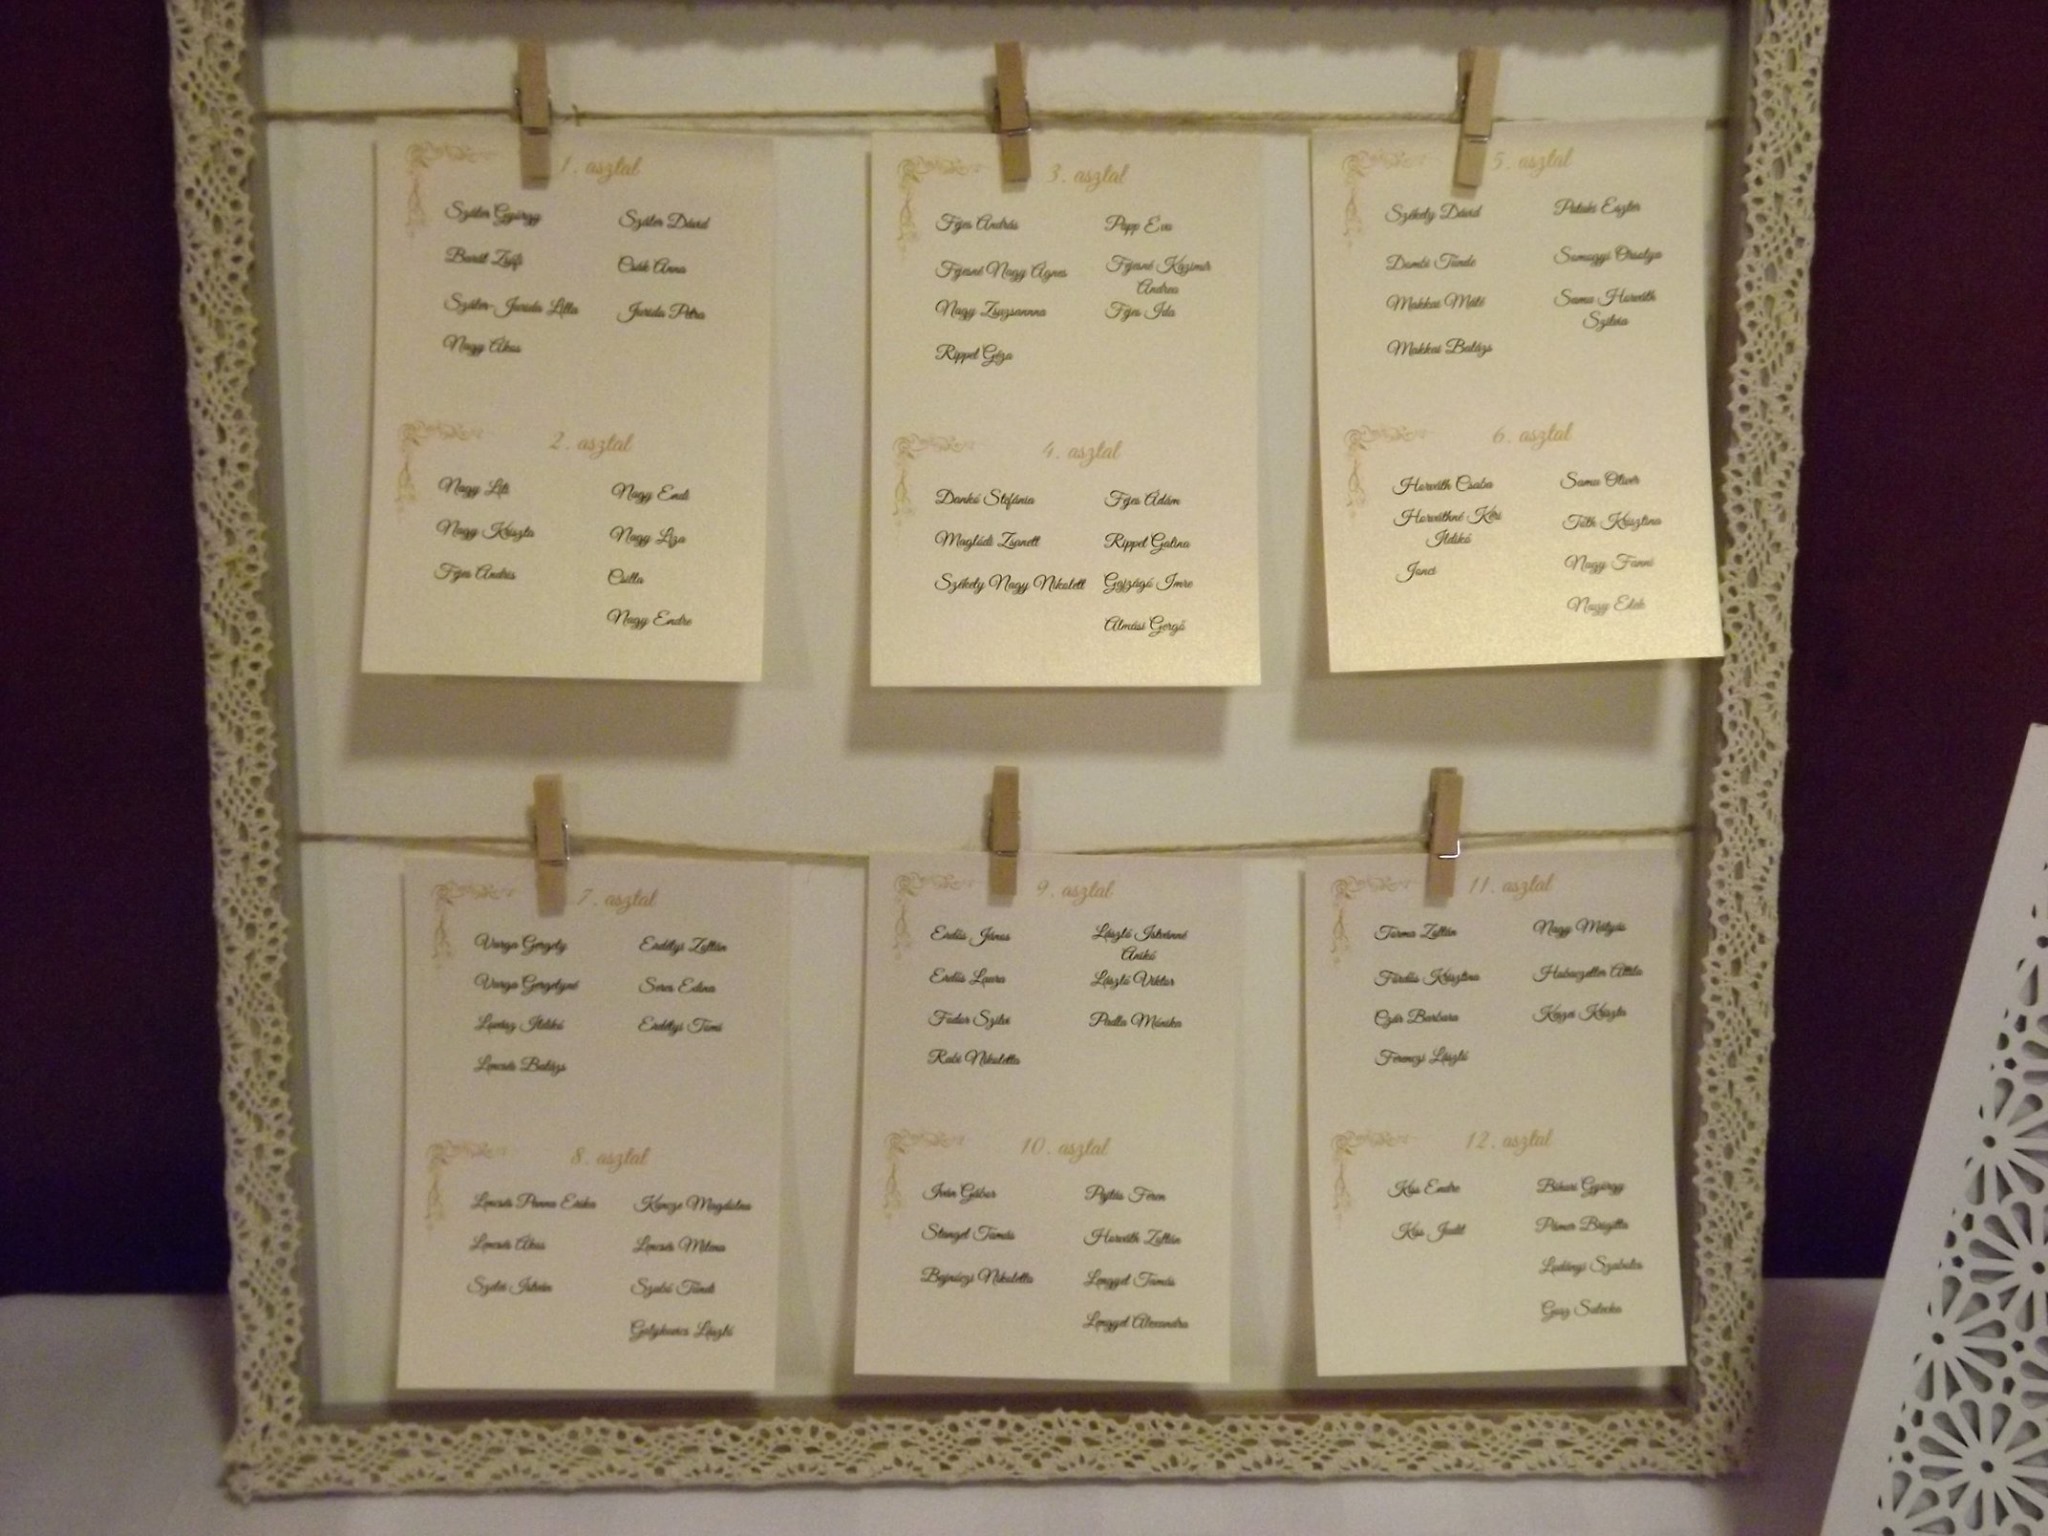 1. asztal
Száler György
Barát Zsófi
Száler-Juroda Lilla
Nagy Ákos
Száler Dávid
Csák Anna
Juroda Petra
2. asztal
Nagy Lili
Nagy Kriszta
Fejes András
Nagy Endi
Nagy Liza
Csilla
Nagy Endre
3. asztal
Fejes András
Fejesné Nagy Ágnes
Nagy Zsuzsannna
Rippel Géza
Papp Eva
Fejesné Kazimir
Andrea
Fejes Ida
4. asztal
Dankó Stefánia
Maglódi Zsanett
Székely Nagy Nikolett
Fejes Ádám
Rippel Galina
Gajzágó Imre
Almási Gergő
5. asztal
Székely Dávid
Dombi Tünde
Makkai Máté
Makkai Balázs
Pataki Eszter
Somogyi Orsolya
Samu Horváth
Szilvia
6. asztal
Horváth Csaba
Horváthné Kéri
Ildikó
Jonci
Samu Olivér
Tóth Krisztina
Nagy Fanni
Nagy Elek
7. asztal
Varga Gergely
Varga Gergelyné
Ildikó
Lencsés Balázs
Erdélyi Zoltán
Seres Edina
Erdélyi Tomi
8. asztal
Lencsés Panna Erika
Lencsés Ákos
István
Kancze Magdolna
Lencsés Milena
Szabó Tündi
László
9. asztal
Erdős János
Erdős Laura
Fodor Szilvi
Rabi Nikoletta
László Istvánné
Anikó
László Viktor
Padla Mónika
10. asztal
Iván Gábor
Stangel Tamás
Bajnóczi Nikoletta
Pajtás Feren
Horváth Zoltán
Lengyel Tamás
Lengyel Alexandra
11. asztal
Torma Zoltán
Fördős Krisztina
Czár Barbara
Ferenczi László
Nagy Mátyás
Habuczeller Attila
Kaszei Kriszta
12. asztal
Kiss Endre
Kiss Judit
Bihari György
Pámer Brigitta
Ludányi Szabolcs
Gasz